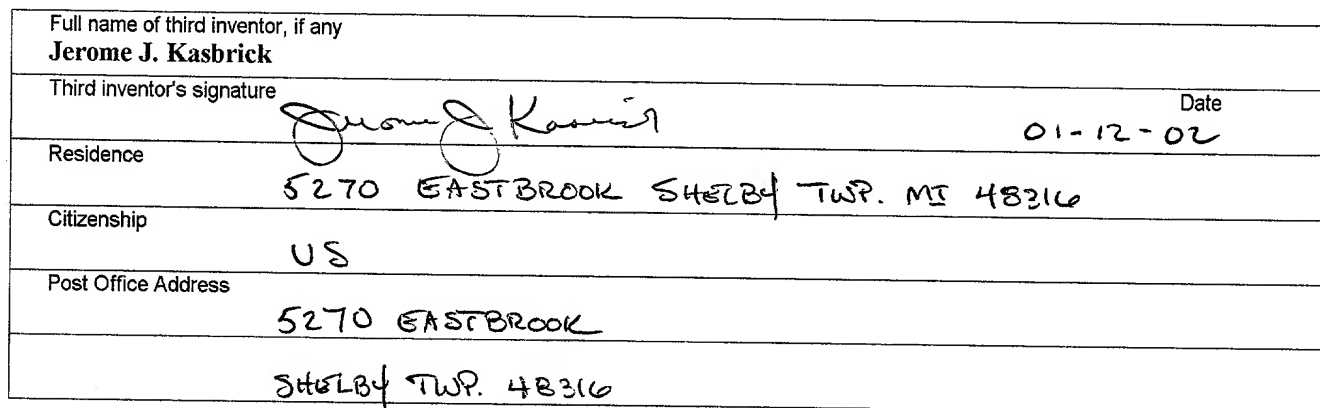 Full name of third inventor, if any
Jerome J. Kasbrick
Third inventor's signature
Jerome J Kasbrick
Date
01-12-02
Residence
5270 EASTBROOK SHELBY TWP. MI 48316
Citizenship
US
Post Office Address
5270 EASTBROOK
SHELBY TWP. 48316